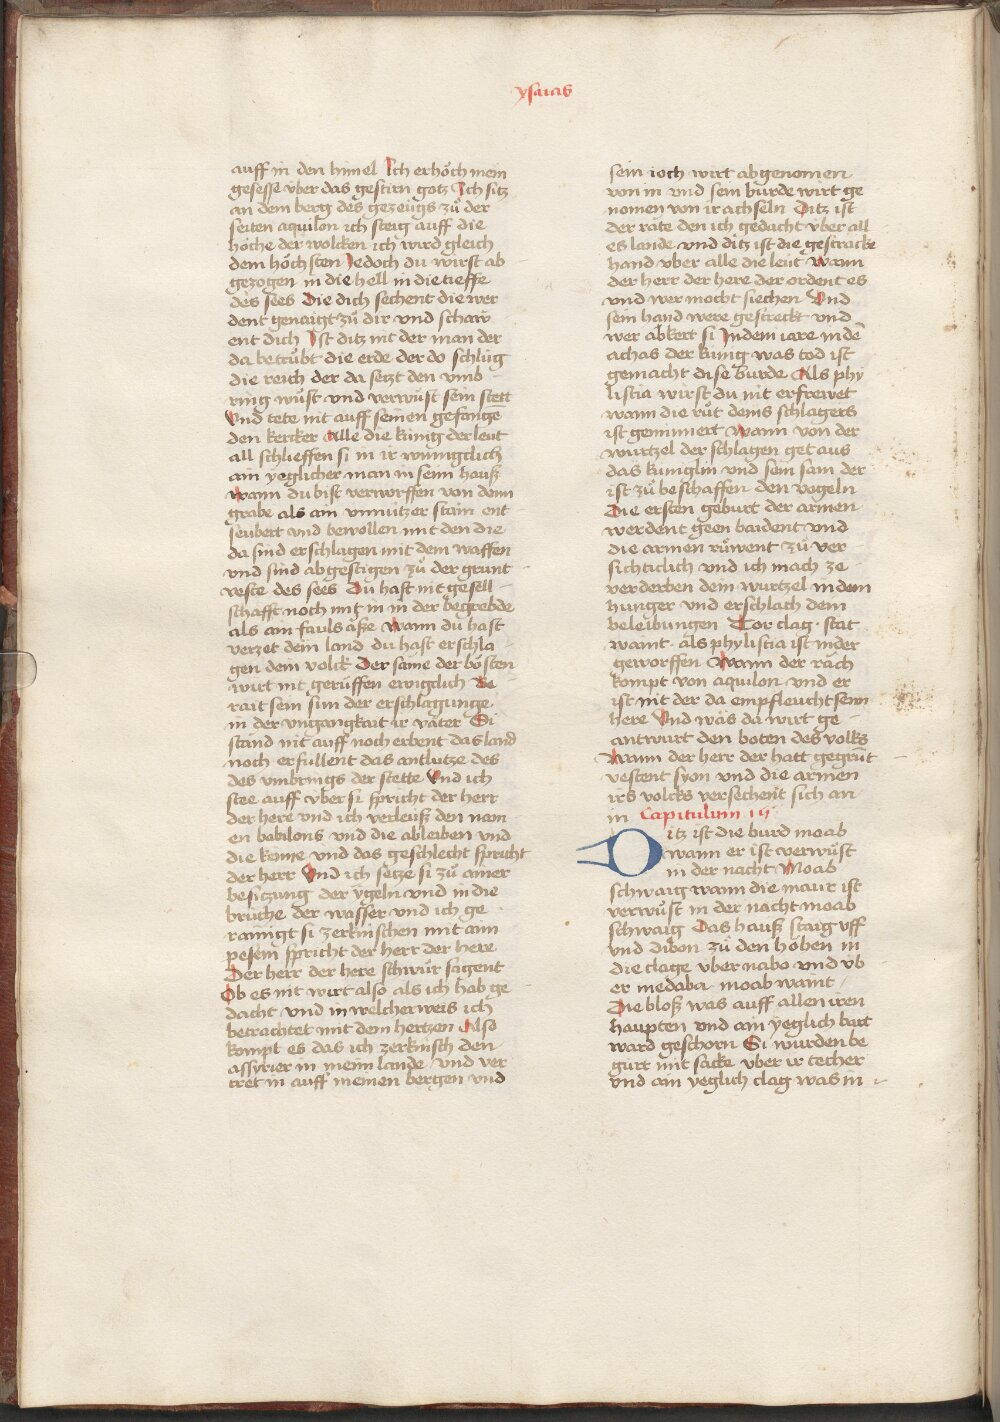 ysaias
auff in den himel Ich erhöch mein
gesesse vber das gestirn gotz Ich sitz
an dem berg des gezeugs zů der
seiten aquilon ich steig auff die
höche der wolcken ich wird gleich
dem höchsten Jedoch du wirst ab
gezogen in die hell in die tieffe
des sees Die dich sechent die wer
dent genaigt zů dir vnd schaw
ent dich Ist ditz nit der man der
da betrůbt die erde der do schlůg
die reich der da setzt den vmb
ring wůst vnd verwůst sein stett
Vnd tete nit auff seinen gefangē
den kercker Alle die künig der leut
all schlieffen si in ir wunigclich
ain yeglicher man in seim hauß
Wann du bist verworffen von deim
grabe als ain vnnützer stain ent
seubert vnd bewollen mit den die
da sind erschlagen mit dem waffen
vnd sind abgestigen zů der grunt
veste des sees Du hast nit gesell
schafft noch mit in in der begrebde
als ain fauls äße Wann du hast
verzet dem land du hast erschla
gen dem volck Der same der bösten
wirt nit gerüffen ewigclich Be
rait sein sün der erschlagunge
in der vngangkait ir väter Si
stand nit auff noch erbent das land
noch erfullent das antlutze des
des vmbrings der stette Vnd ich
stee auff vber si spricht der herr
der here vnd ich verleuß den nam
en babilons vnd die ableiben vnd
die keime vnd das geschlecht spricht
der herr Vnd ich setze si zů ainer
besiczung der ygeln vnd in die
brüche der wasser vnd ich ge
rainigt si zerknischen mit aim
pesem spricht der herr der here
Der herr der here schwůr sagent
Ob es nit wirt also als ich hab ge
dacht vnd in welcher weis ich
betrachtet mit dem hertzen Also
kompt es das ich zerknisch den
assyrier in meim lande vnd ver
tret in auff meinen bergen vnd
sein ioch wirt abgenomen
von in vnd sein burde wirt ge
nomen von ir achseln Ditz ist
der rate den ich gedacht vber all
es lande vnd ditz ist die gestrackt
hand vber alle die leut Wann
der herr der here der ordent es
vnd wer mocht siechen Vnd
sein hand were gestreckt vnd
wer abkert si In dem iare in dē
achas der künig was tod ist
gemacht dise burde Als phy
listia wirst du nit erfrewet
wann die růt deins schlagers
ist geminnert Wann von der
wurtzel der schlagen get aus
das kuniglin vnd sein sam der
ist zů beschaffen den vogeln
Die ersten geburt der armen
werdent geen baident vnd
die armen růwent zů ver
sichticlich vnd ich mach ze
verderben dein wurtzel in dem
hunger vnd erschlach dein
beleibungen Tor clag stat
waint als phylistia ist nider
geworffen Wann der rach
kompt von aquilon vnd er
ist nit der da empfleucht seim
here Vnd was da wirt ge
antwurt den boten des volks
Wann der herr der hatt gegrůt
vestent syon vnd die armen
irs volcks versechent sich an
in Capitulum iij
Ditz ist die burd moab
wann er ist verwůst
in der nacht Moab
schwaig wann die maur ist
verwůst in der nacht moab
schwaig Das hauß staig vff
vnd dibon zů den höhen in
die clage vber nabo vnd vb
er medaba moab waint
Die bloß was auff allen iren
haupten vnd ain yeglich bart
ward geschorn Si wurden be
gurt mit sacke vber ir techer
vnd ain yeglich clag was in